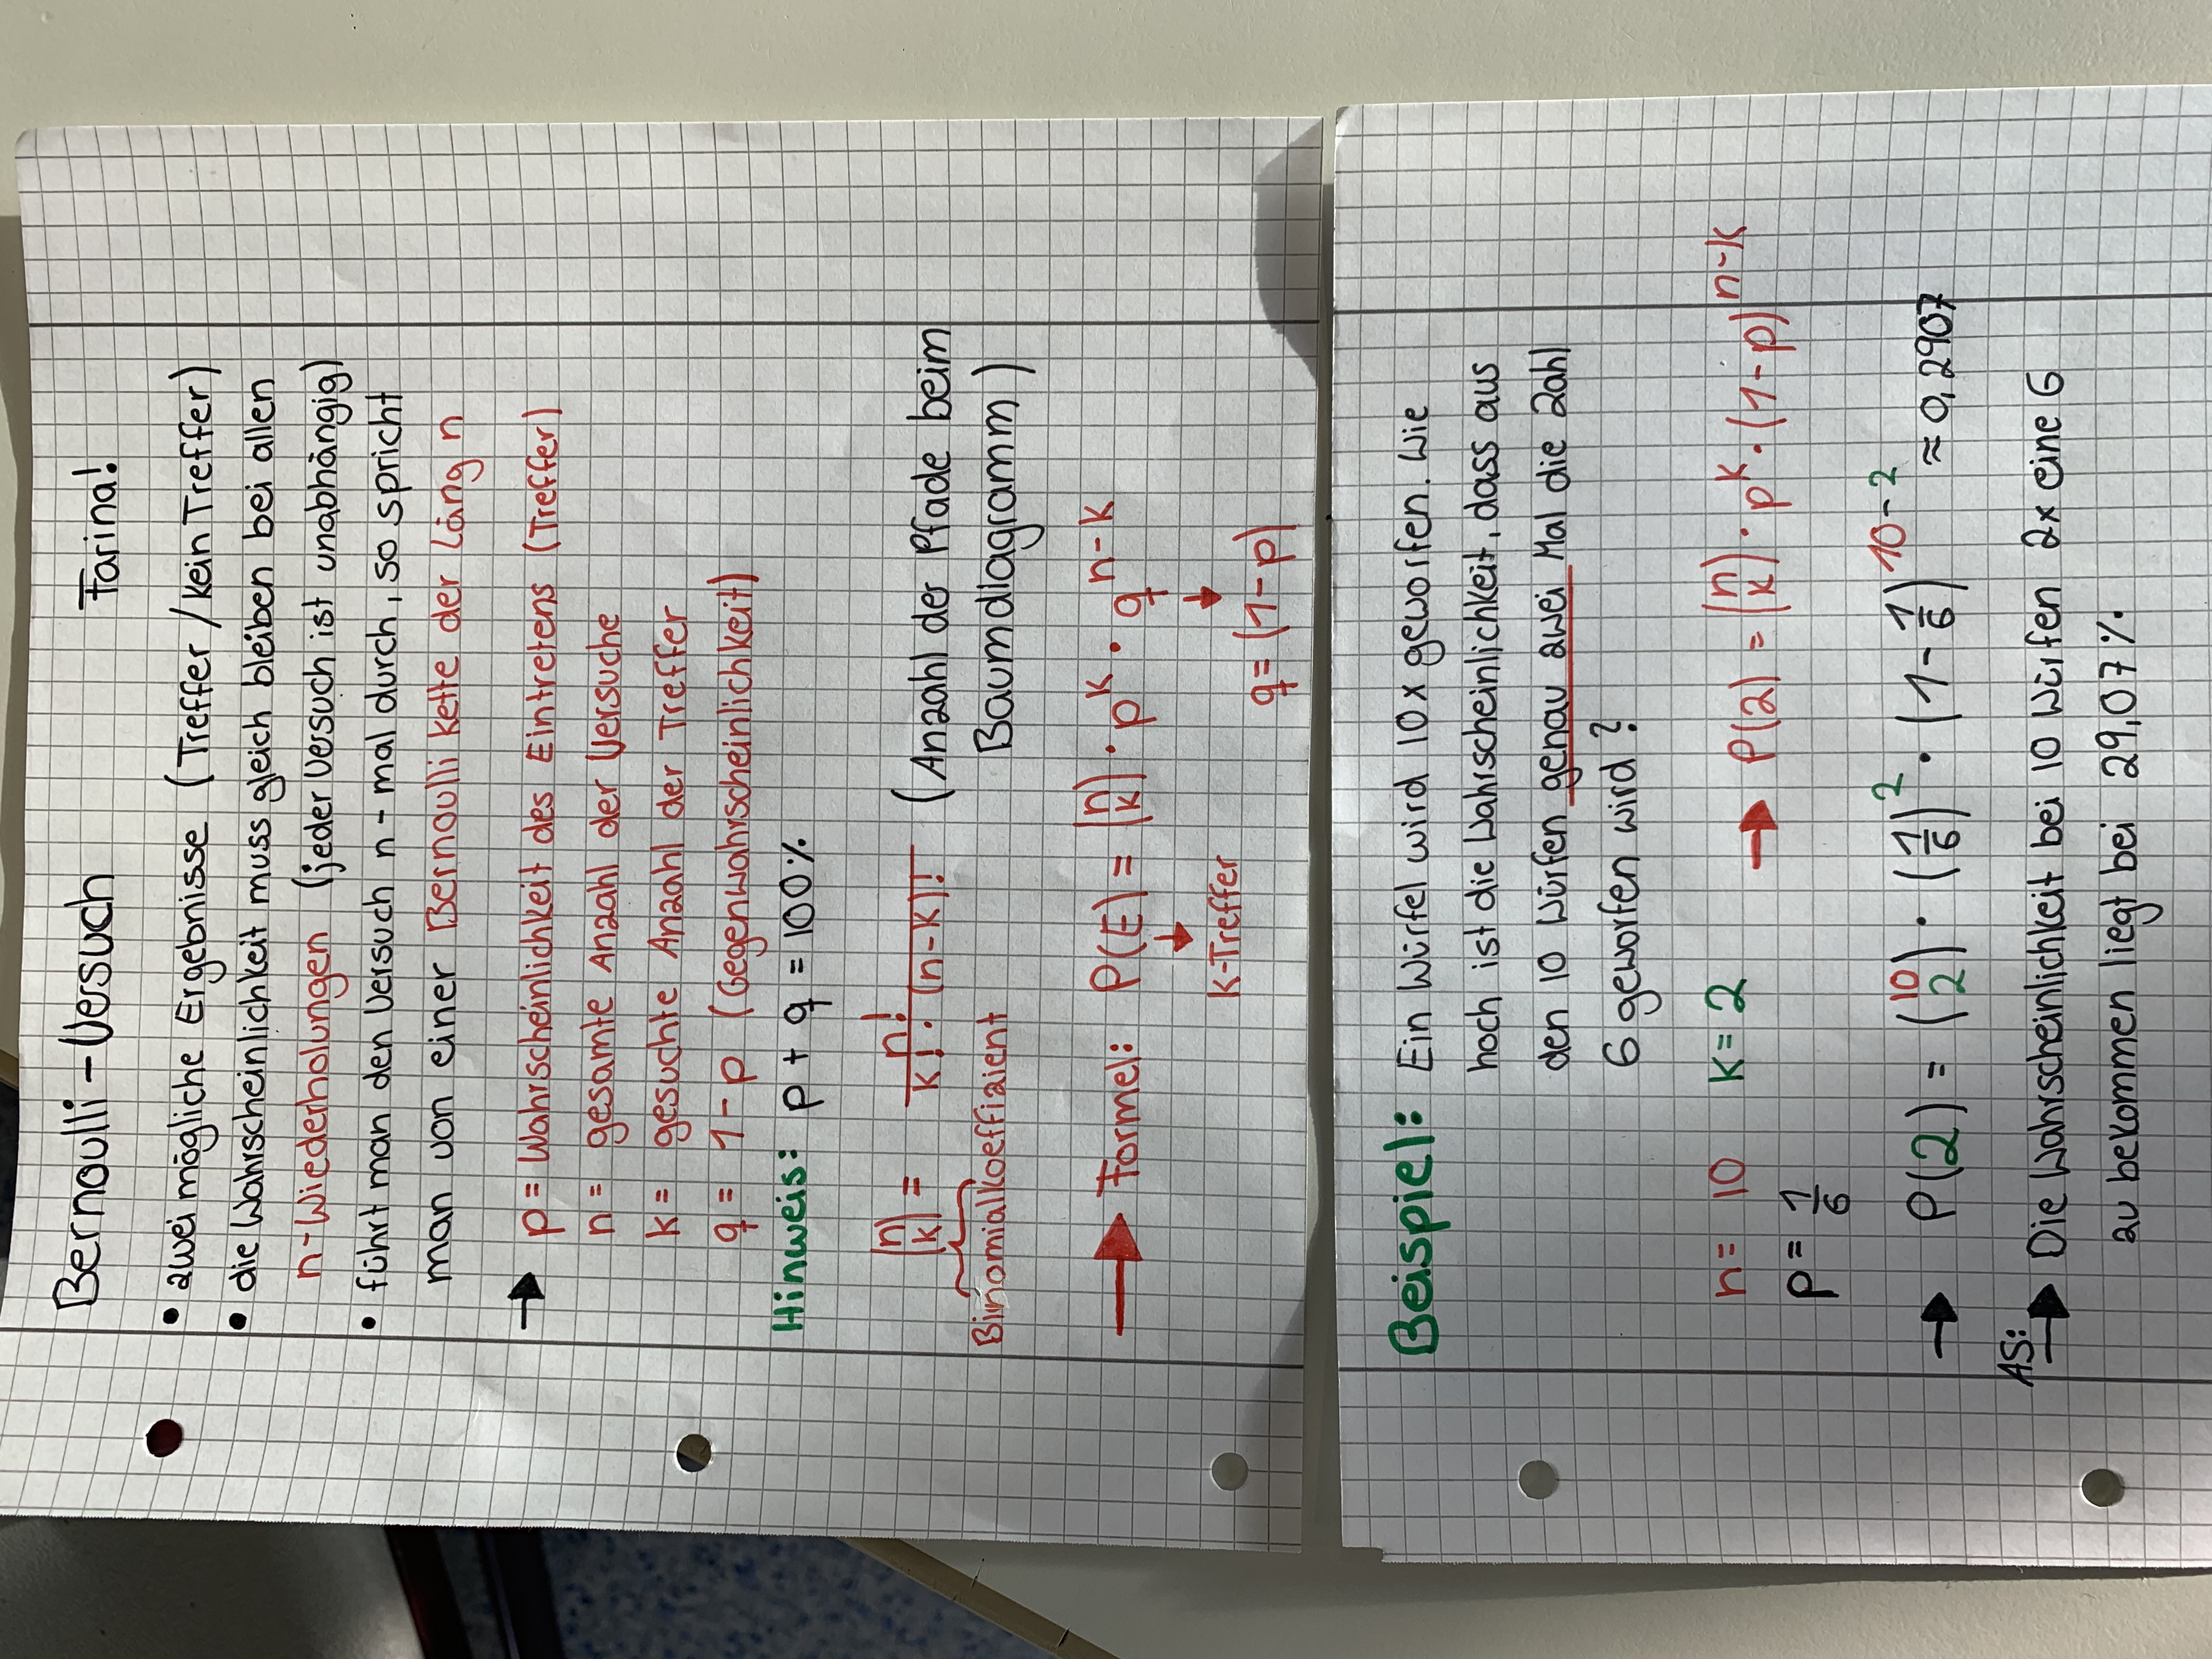 Bernoulli-Versuch Farina!
• zwei mögliche Ergebnisse (Treffer / kein Treffer)
• die Wahrscheinlichkeit muss gleich bleiben bei allen
n-Wiederholungen (jeder Versuch ist unabhängig)
• führt man den Versuch n-mal durch, so spricht
man von einer Bernoulli kette der Läng n
→ p = Wahrscheinlichkeit des Eintretens (Treffer)
n = gesamte Anzahl der Versuche
k = gesuchte Anzahl der Treffer
q = 1-p (Gegenwahrscheinlichkeit)
Hinweis: p + q = 100%
(n k) = n! / k! · (n-k)! (Anzahl der Pfade beim
Binomialkoeffizient Baumdiagramm)
→ Formel: P(E) = (n k) · p^k · q^n-k
↓ ↓
K-Treffer q = (1-p)
Beispiel: Ein Würfel wird 10x geworfen. Wie
hoch ist die Wahrscheinlichkeit, dass aus
den 10 Würfen genau zwei Mal die Zahl
6 geworfen wird?
n = 10 k = 2 → P(2) = (n k) · p^k · (1-p)^n-k
p = 1/6
→ P(2) = (10 2) · (1/6)^2 · (1 - 1/6)^10-2 ≈ 0,2907
AS:
→ Die Wahrscheinlichkeit bei 10 Würfen 2x eine 6
zu bekommen liegt bei 29,07%.